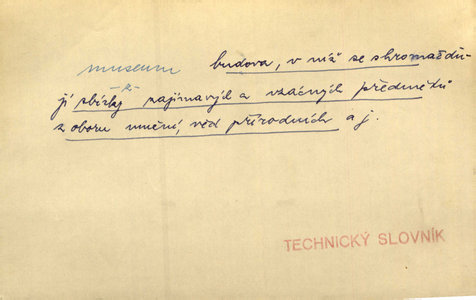 museum budova, v níž se shromažďu-
jí sbírky zajímavých a vzácných předmětů
z oboru umění, věd přírodních a j.
TECHNICKÝ SLOVNÍK